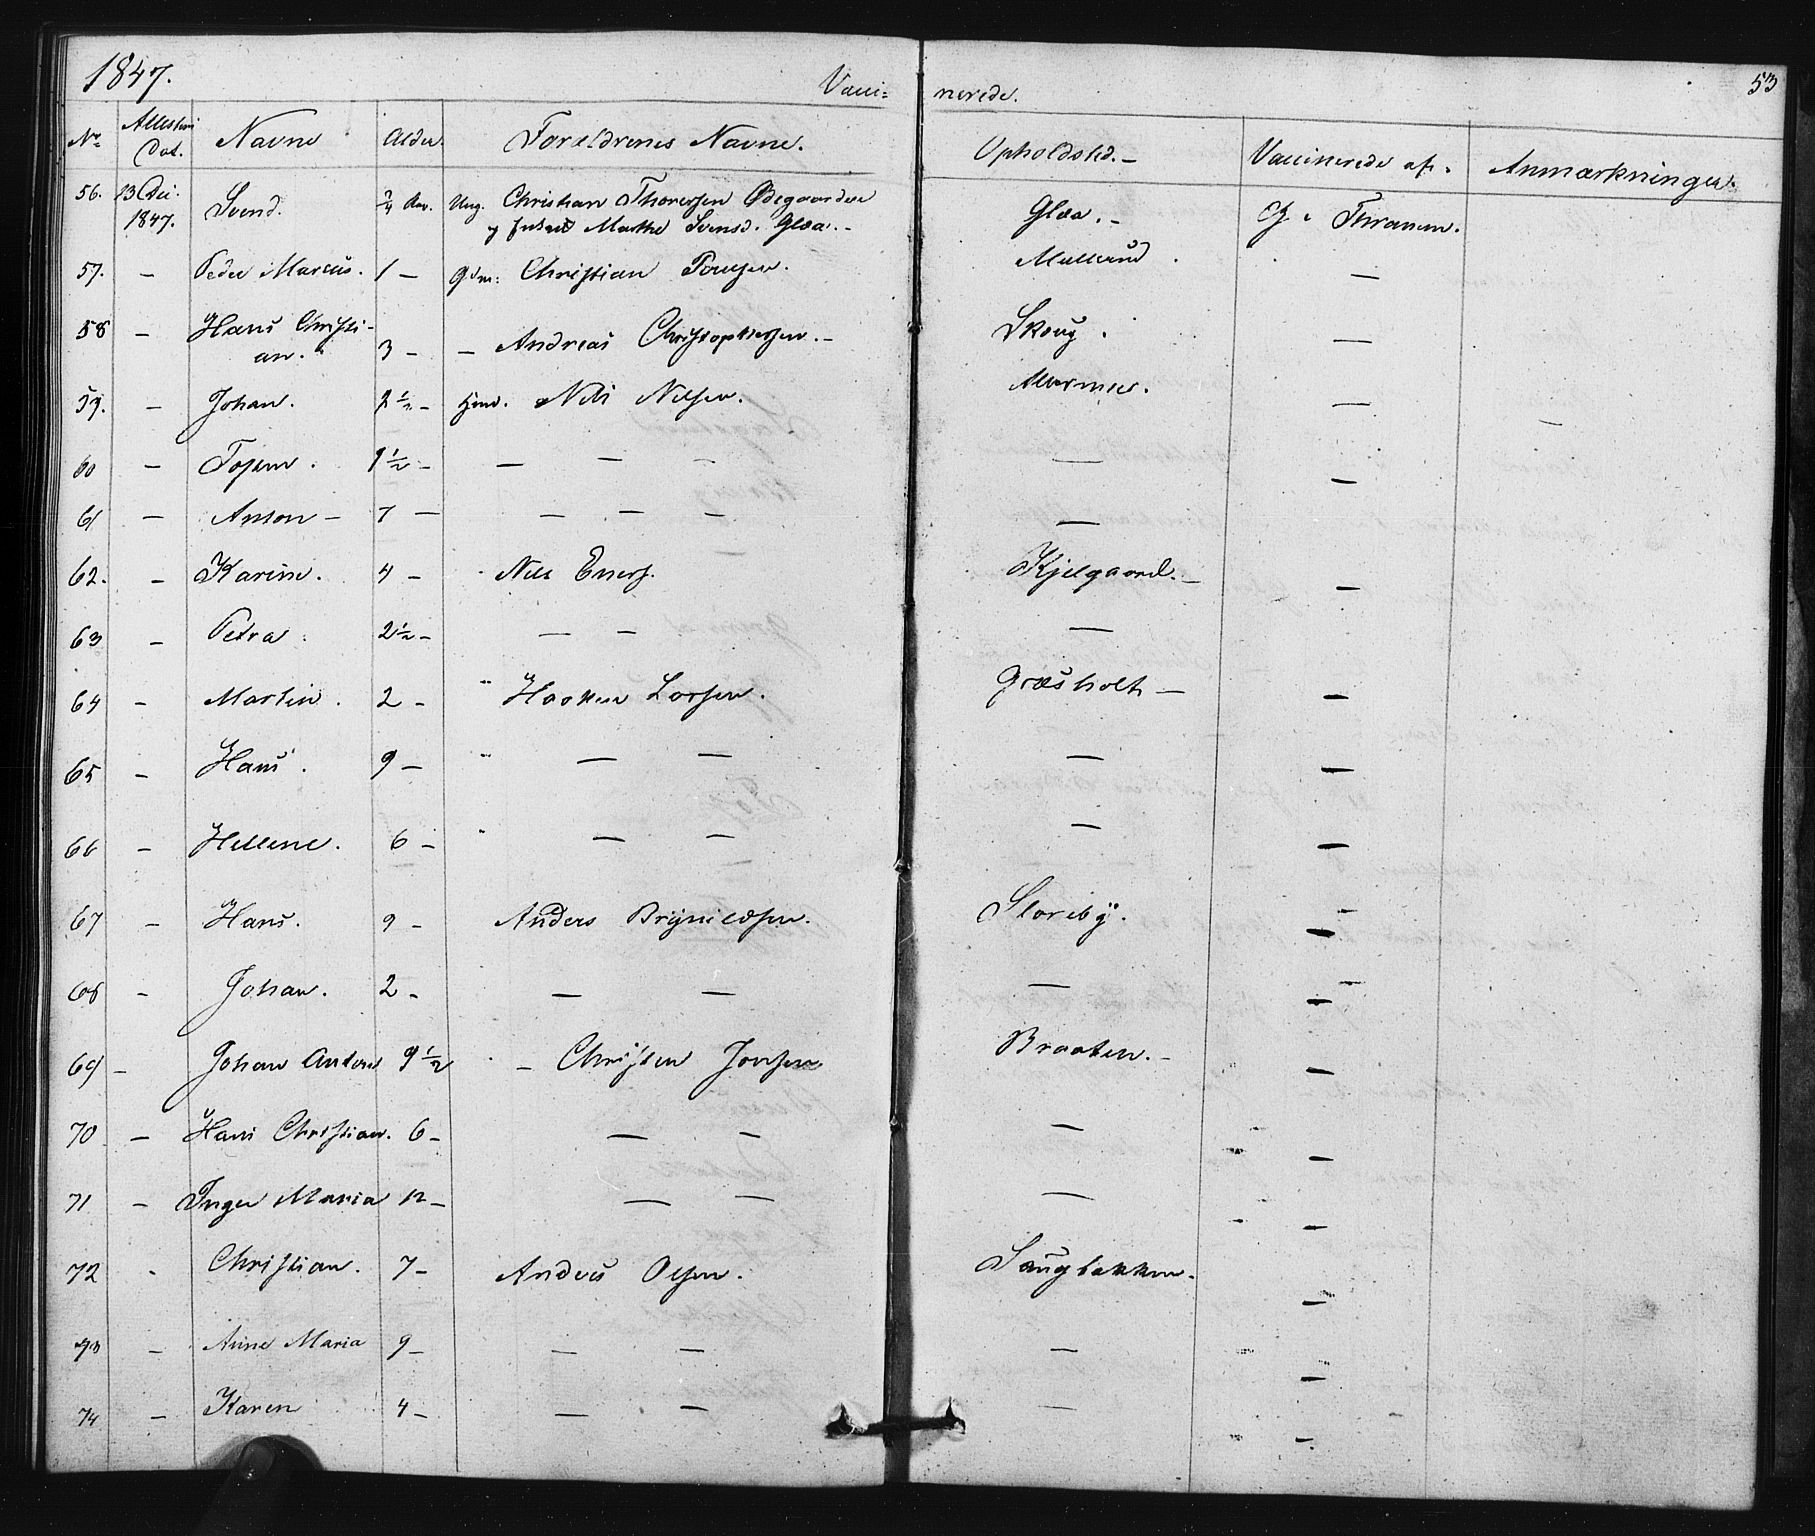 1847. Vacci= nerede. 53
No Attestens Dat. Navne Alder. Forældrenes Navne. Opholdsted.— Vaccinerede af. Anmærkninger.
56. 13 Dec. 1847. Svend. 3/4 Aar. Ung. Christian Thoresen Ødegaarden Glæa.— C. Thranem.
Marthe Svensd. Glæa.—
57. — Peder Marcus. 1 — Gdm: Christian Poulsen. —
58 — Hans Christi-
an. 3 — — Andreas Christophersen.— Skoug. —
59. — Johan. 2 1/2 — Hmd. Nils Nilsen. —
60 — 1 1/2 — — — — — —
61 — Anton — 7 — — — — — —
62. — Karine. 4 — Nils Eners. Kjelgaard.— —
63 — Petra. 2 1/2 — — — —
64 — Martin. 2 — " Haaken Larsen. Græsholt — —
65 — Hans. 9 — " — — — —
66 — Hellene. 6 — " — — — —
67 — Hans. 9 — Anders Brynildsen. Storeby. —
68 — Johan. 2 — — — — —
69 — Johan Anton 9 1/2 — Christen Jonsen Braaten.— —
70 — Hans Christian. 6 — — — — —
71 — Inger Maria 12 — — — — —
72 - Christian. 7 — Anders Olsen. Saugbakken. —
73 — Anne Maria 9 — — — — —
74 — Karen 4 — — — — —